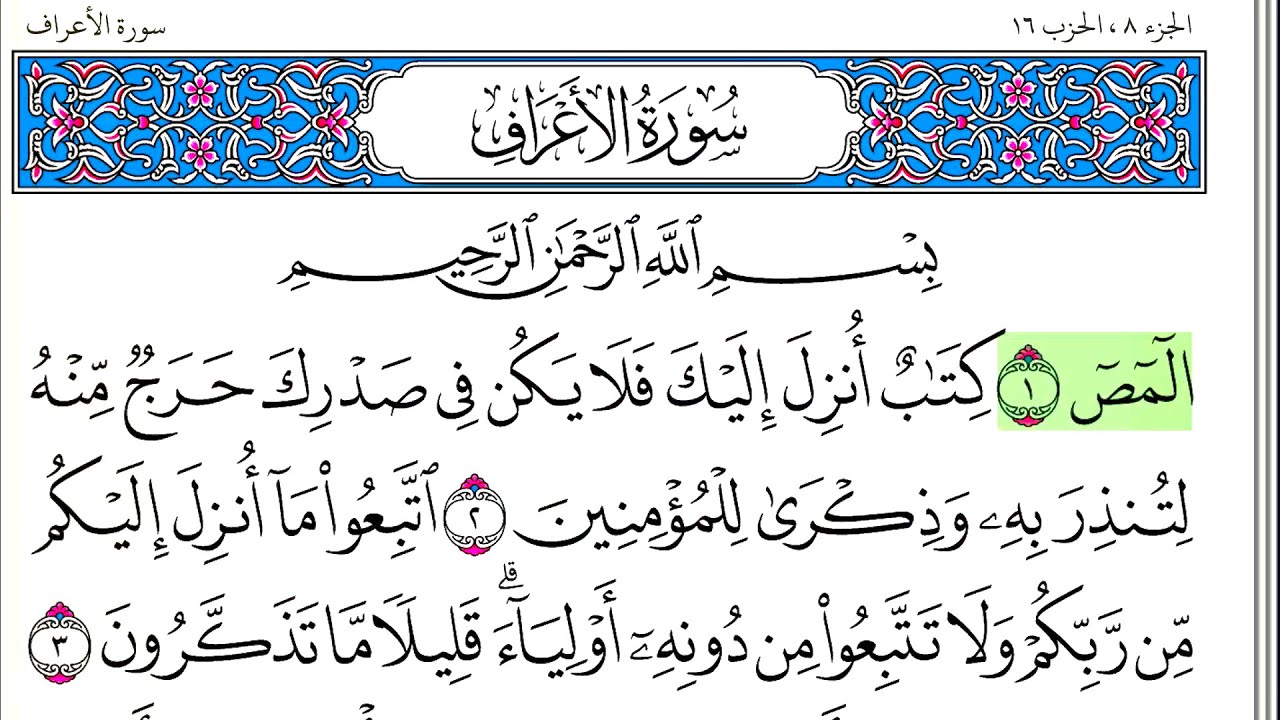 الجزء ٨ ، الحزب ١٦
سورة الأعراف
سُورَةُ الأَعْرَافِ
بِسْمِ ٱللَّهِ ٱلرَّحْمَٰنِ ٱلرَّحِيمِ
الٓمٓصٓ ١ كِتَٰبٌ أُنزِلَ إِلَيْكَ فَلَا يَكُن فِى صَدْرِكَ حَرَجٌ مِّنْهُ
لِتُنذِرَ بِهِۦ وَذِكْرَىٰ لِلْمُؤْمِنِينَ ٢ ٱتَّبِعُوا۟ مَآ أُنزِلَ إِلَيْكُم
مِّن رَّبِّكُمْ وَلَا تَتَّبِعُوا۟ مِن دُونِهِۦٓ أَوْلِيَآءَ ۗ قَلِيلًا مَّا تَذَكَّرُونَ ٣